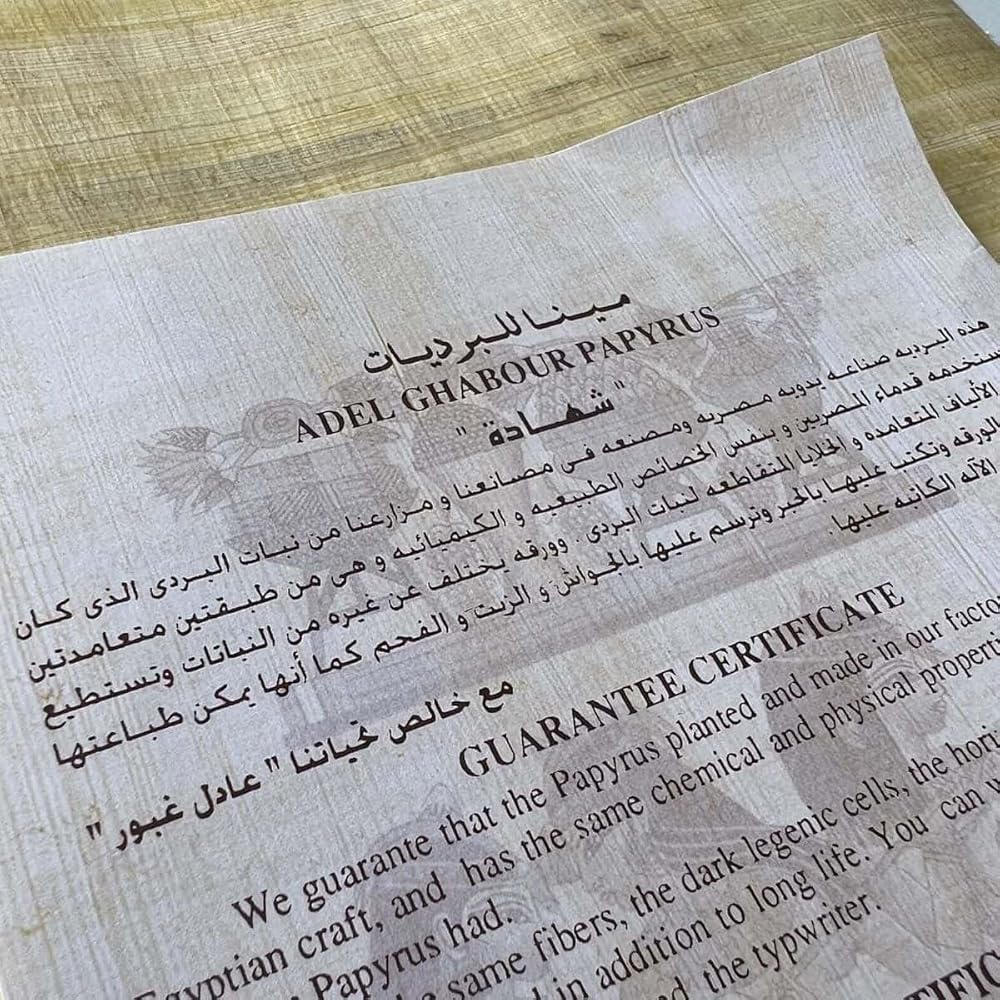 مينا للبرديات
ADEL GHABOUR PAPYRUS
" شهادة "
هذه البرديه صناعه يدويه مصريه ومصنعه فى مصانعنا و مزارعنا من نبات البردى الذى كان
ستخدمه قدماء المصريين و بنفس الخصائص الطبيعيه و الكيميائيه و هى من طبقتين متعامدتين
الألياف المتعامده و الخلايا المتقاطعه لنبات البردى . وورقه يختلف عن غيره من النباتات وتستطيع
الورقه وتكتب عليها بالحبر وترسم عليها بالجواش و الزيت و الفحم كما أنها يمكن طباعتها
الآله الكاتبه عليها .
مع خالص تحياتنا " عادل غبور "
GUARANTEE CERTIFICATE
We guarante that the Papyrus planted and made in our facto
Egyptian craft, and has the same chemical and physical properti
Papyrus had.
same fibers, the dark legenic cells, the hori
in addition to long life. You can w
the typewriter.